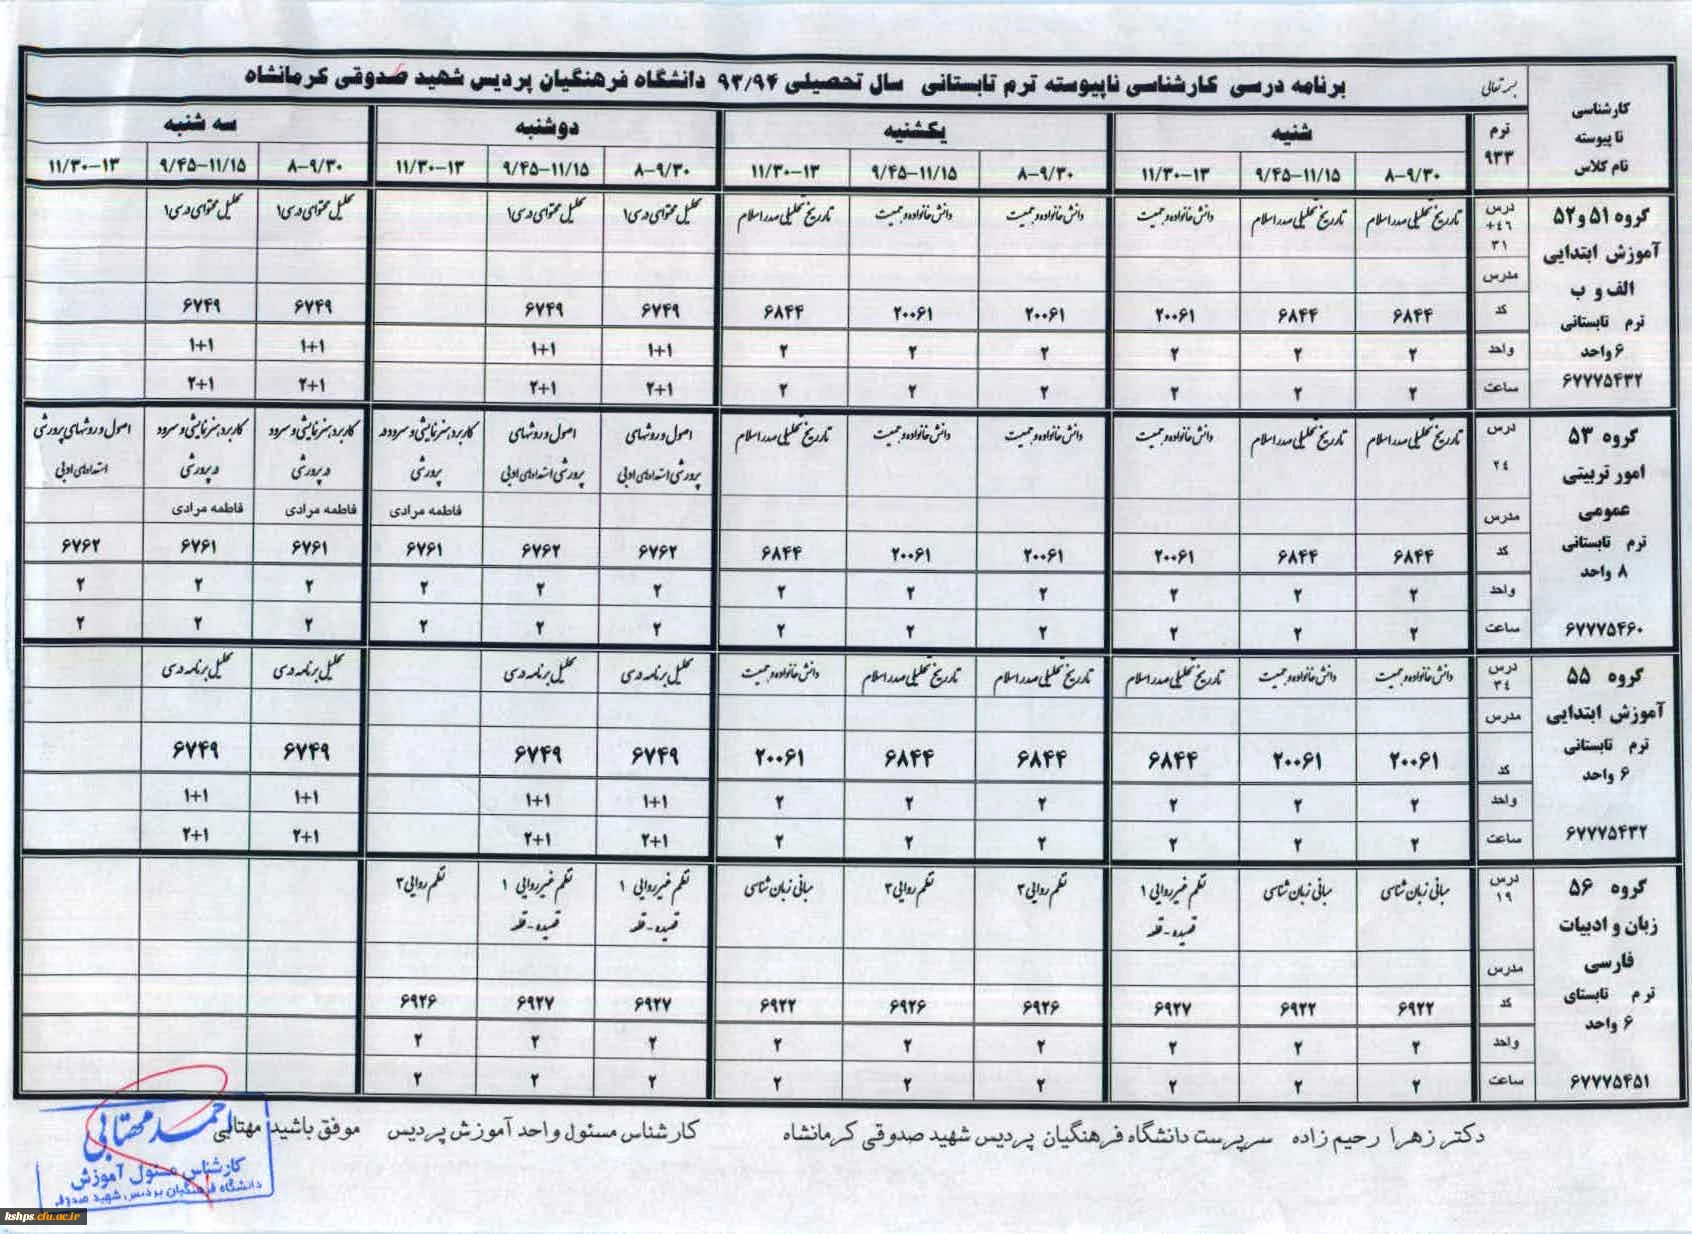 بسمه تعالی
برنامه درسی کارشناسی ناپیوسته ترم تابستانی سال تحصیلی ۹۳/۹۴ دانشگاه فرهنگیان پردیس شهید صدوقی کرمانشاه
کارشناسی ناپیوسته نام کلاس
ترم ۹۳۳
شنبه یکشنبه دوشنبه سه شنبه
۸-۹/۳۰ ۹/۴۵-۱۱/۱۵ ۱۱/۳۰-۱۳ ۸-۹/۳۰ ۹/۴۵-۱۱/۱۵ ۱۱/۳۰-۱۳ ۸-۹/۳۰ ۹/۴۵-۱۱/۱۵ ۱۱/۳۰-۱۳ ۸-۹/۳۰ ۹/۴۵-۱۱/۱۵ ۱۱/۳۰-۱۳
گروه ۵۱ و ۵۲
آموزش ابتدایی
الف و ب
ترم تابستانی
۶ واحد
۶۷۷۷۵۴۳۲
درس ۴۶+ ۳۱ تاریخ تحلیلی صدر اسلام تاریخ تحلیلی صدر اسلام دانش خانواده و جمعیت دانش خانواده و جمعیت دانش خانواده و جمعیت تاریخ تحلیلی صدر اسلام تحلیل محتوای درسی۱ تحلیل محتوای درسی۱ تحلیل محتوای درسی۱ تحلیل محتوای درسی۱
مدرس
کد ۶۸۴۴ ۶۸۴۴ ۲۰۰۶۱ ۲۰۰۶۱ ۲۰۰۶۱ ۶۸۴۴ ۶۷۴۹ ۶۷۴۹ ۶۷۴۹ ۶۷۴۹
واحد ۲ ۲ ۲ ۲ ۲ ۲ ۱+۱ ۱+۱ ۱+۱ ۱+۱
ساعت ۲ ۲ ۲ ۲ ۲ ۲ ۲+۱ ۲+۱ ۲+۱ ۲+۱
گروه ۵۳
امور تربیتی
عمومی
ترم تابستانی
۸ واحد
۶۷۷۷۵۴۶۰
درس ۲۴ تاریخ تحلیلی صدر اسلام تاریخ تحلیلی صدر اسلام دانش خانواده و جمعیت دانش خانواده و جمعیت دانش خانواده و جمعیت تاریخ تحلیلی صدر اسلام اصول و روشهای پرورشی استعدادهای ادبی اصول و روشهای پرورشی استعدادهای ادبی کاربرد هنر نمایشی و سرود در پرورشی کاربرد هنر نمایشی و سرود در پرورشی کاربرد هنر نمایشی و سرود در پرورشی اصول و روشهای پرورشی استعدادهای ادبی
مدرس فاطمه مرادی فاطمه مرادی فاطمه مرادی
کد ۶۸۴۴ ۶۸۴۴ ۲۰۰۶۱ ۲۰۰۶۱ ۲۰۰۶۱ ۶۸۴۴ ۶۷۶۲ ۶۷۶۲ ۶۷۶۱ ۶۷۶۱ ۶۷۶۱ ۶۷۶۲
واحد ۲ ۲ ۲ ۲ ۲ ۲ ۲ ۲ ۲ ۲ ۲ ۲
ساعت ۲ ۲ ۲ ۲ ۲ ۲ ۲ ۲ ۲ ۲ ۲ ۲
گروه ۵۵
آموزش ابتدایی
ترم تابستانی
۶ واحد
۶۷۷۷۵۴۳۲
درس ۳۴ دانش خانواده و جمعیت دانش خانواده و جمعیت تاریخ تحلیلی صدر اسلام تاریخ تحلیلی صدر اسلام تاریخ تحلیلی صدر اسلام دانش خانواده و جمعیت تحلیل برنامه درسی تحلیل برنامه درسی تحلیل برنامه درسی تحلیل برنامه درسی
مدرس
کد ۲۰۰۶۱ ۲۰۰۶۱ ۶۸۴۴ ۶۸۴۴ ۶۸۴۴ ۲۰۰۶۱ ۶۷۴۹ ۶۷۴۹ ۶۷۴۹ ۶۷۴۹
واحد ۲ ۲ ۲ ۲ ۲ ۲ ۱+۱ ۱+۱ ۱+۱ ۱+۱
ساعت ۲ ۲ ۲ ۲ ۲ ۲ ۲+۱ ۲+۱ ۲+۱ ۲+۱
گروه ۵۶
زبان و ادبیات
فارسی
ترم تابستای
۶ واحد
۶۷۷۷۵۴۵۱
درس ۱۹ مبانی زبان شناسی مبانی زبان شناسی نظم غیرروایی ۱ قصیده-قطعه نظم روایی۲ نظم روایی۲ مبانی زبان شناسی نظم غیرروایی ۱ قصیده-قطعه نظم غیرروایی ۱ قصیده-قطعه نظم روایی۲
مدرس
کد ۶۹۲۲ ۶۹۲۲ ۶۹۲۷ ۶۹۲۶ ۶۹۲۶ ۶۹۲۲ ۶۹۲۷ ۶۹۲۷ ۶۹۲۶
واحد ۲ ۲ ۲ ۲ ۲ ۲ ۲ ۲ ۲
ساعت ۲ ۲ ۲ ۲ ۲ ۲ ۲ ۲ ۲
دکتر زهرا رحیم زاده سرپرست دانشگاه فرهنگیان پردیس شهید صدوقی کرمانشاه کارشناس مسئول واحد آموزش پردیس موفق باشید مهتابی
احمد مهتابی
کارشناس مسئول آموزش
دانشگاه فرهنگیان پردیس شهید صدوقی
kshps.cfu.ac.ir